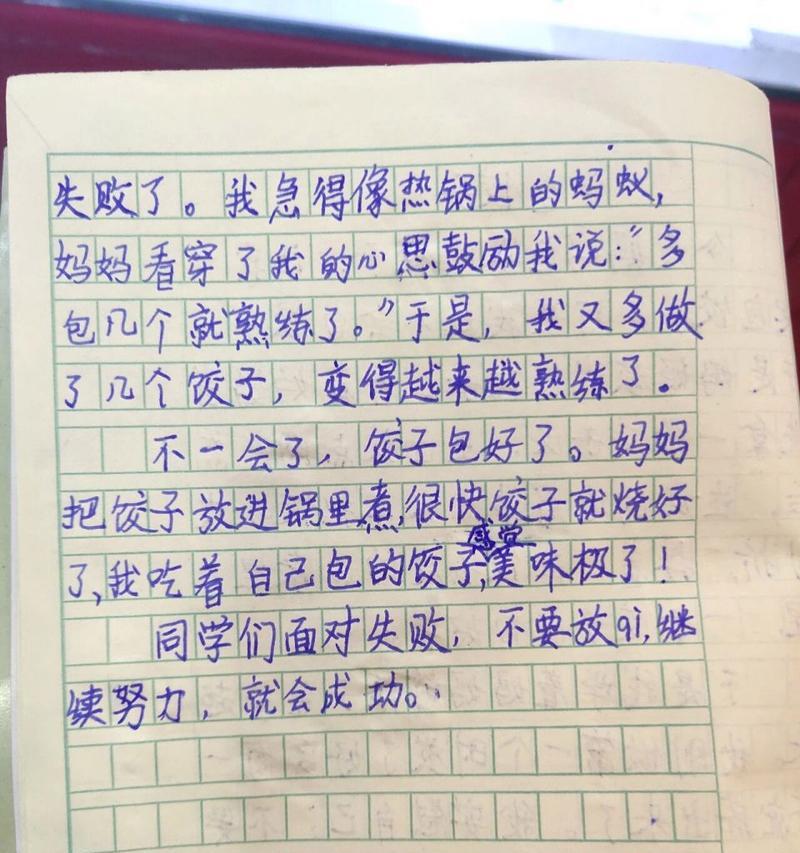 失败了。我急得像热锅上的蚂蚁,
妈妈看穿了我的心思鼓励我说:"多
包几个就熟练了。"于是,我又多做
了几个饺子,变得越来越熟练了。
不一会了,饺子包好了。妈妈
把饺子放进锅里煮,很快,饺子就烧好
感觉
了,我吃着自己包的饺子,美味极了!
同学们面对失败,不要放qi,继
续努力,就会成功。